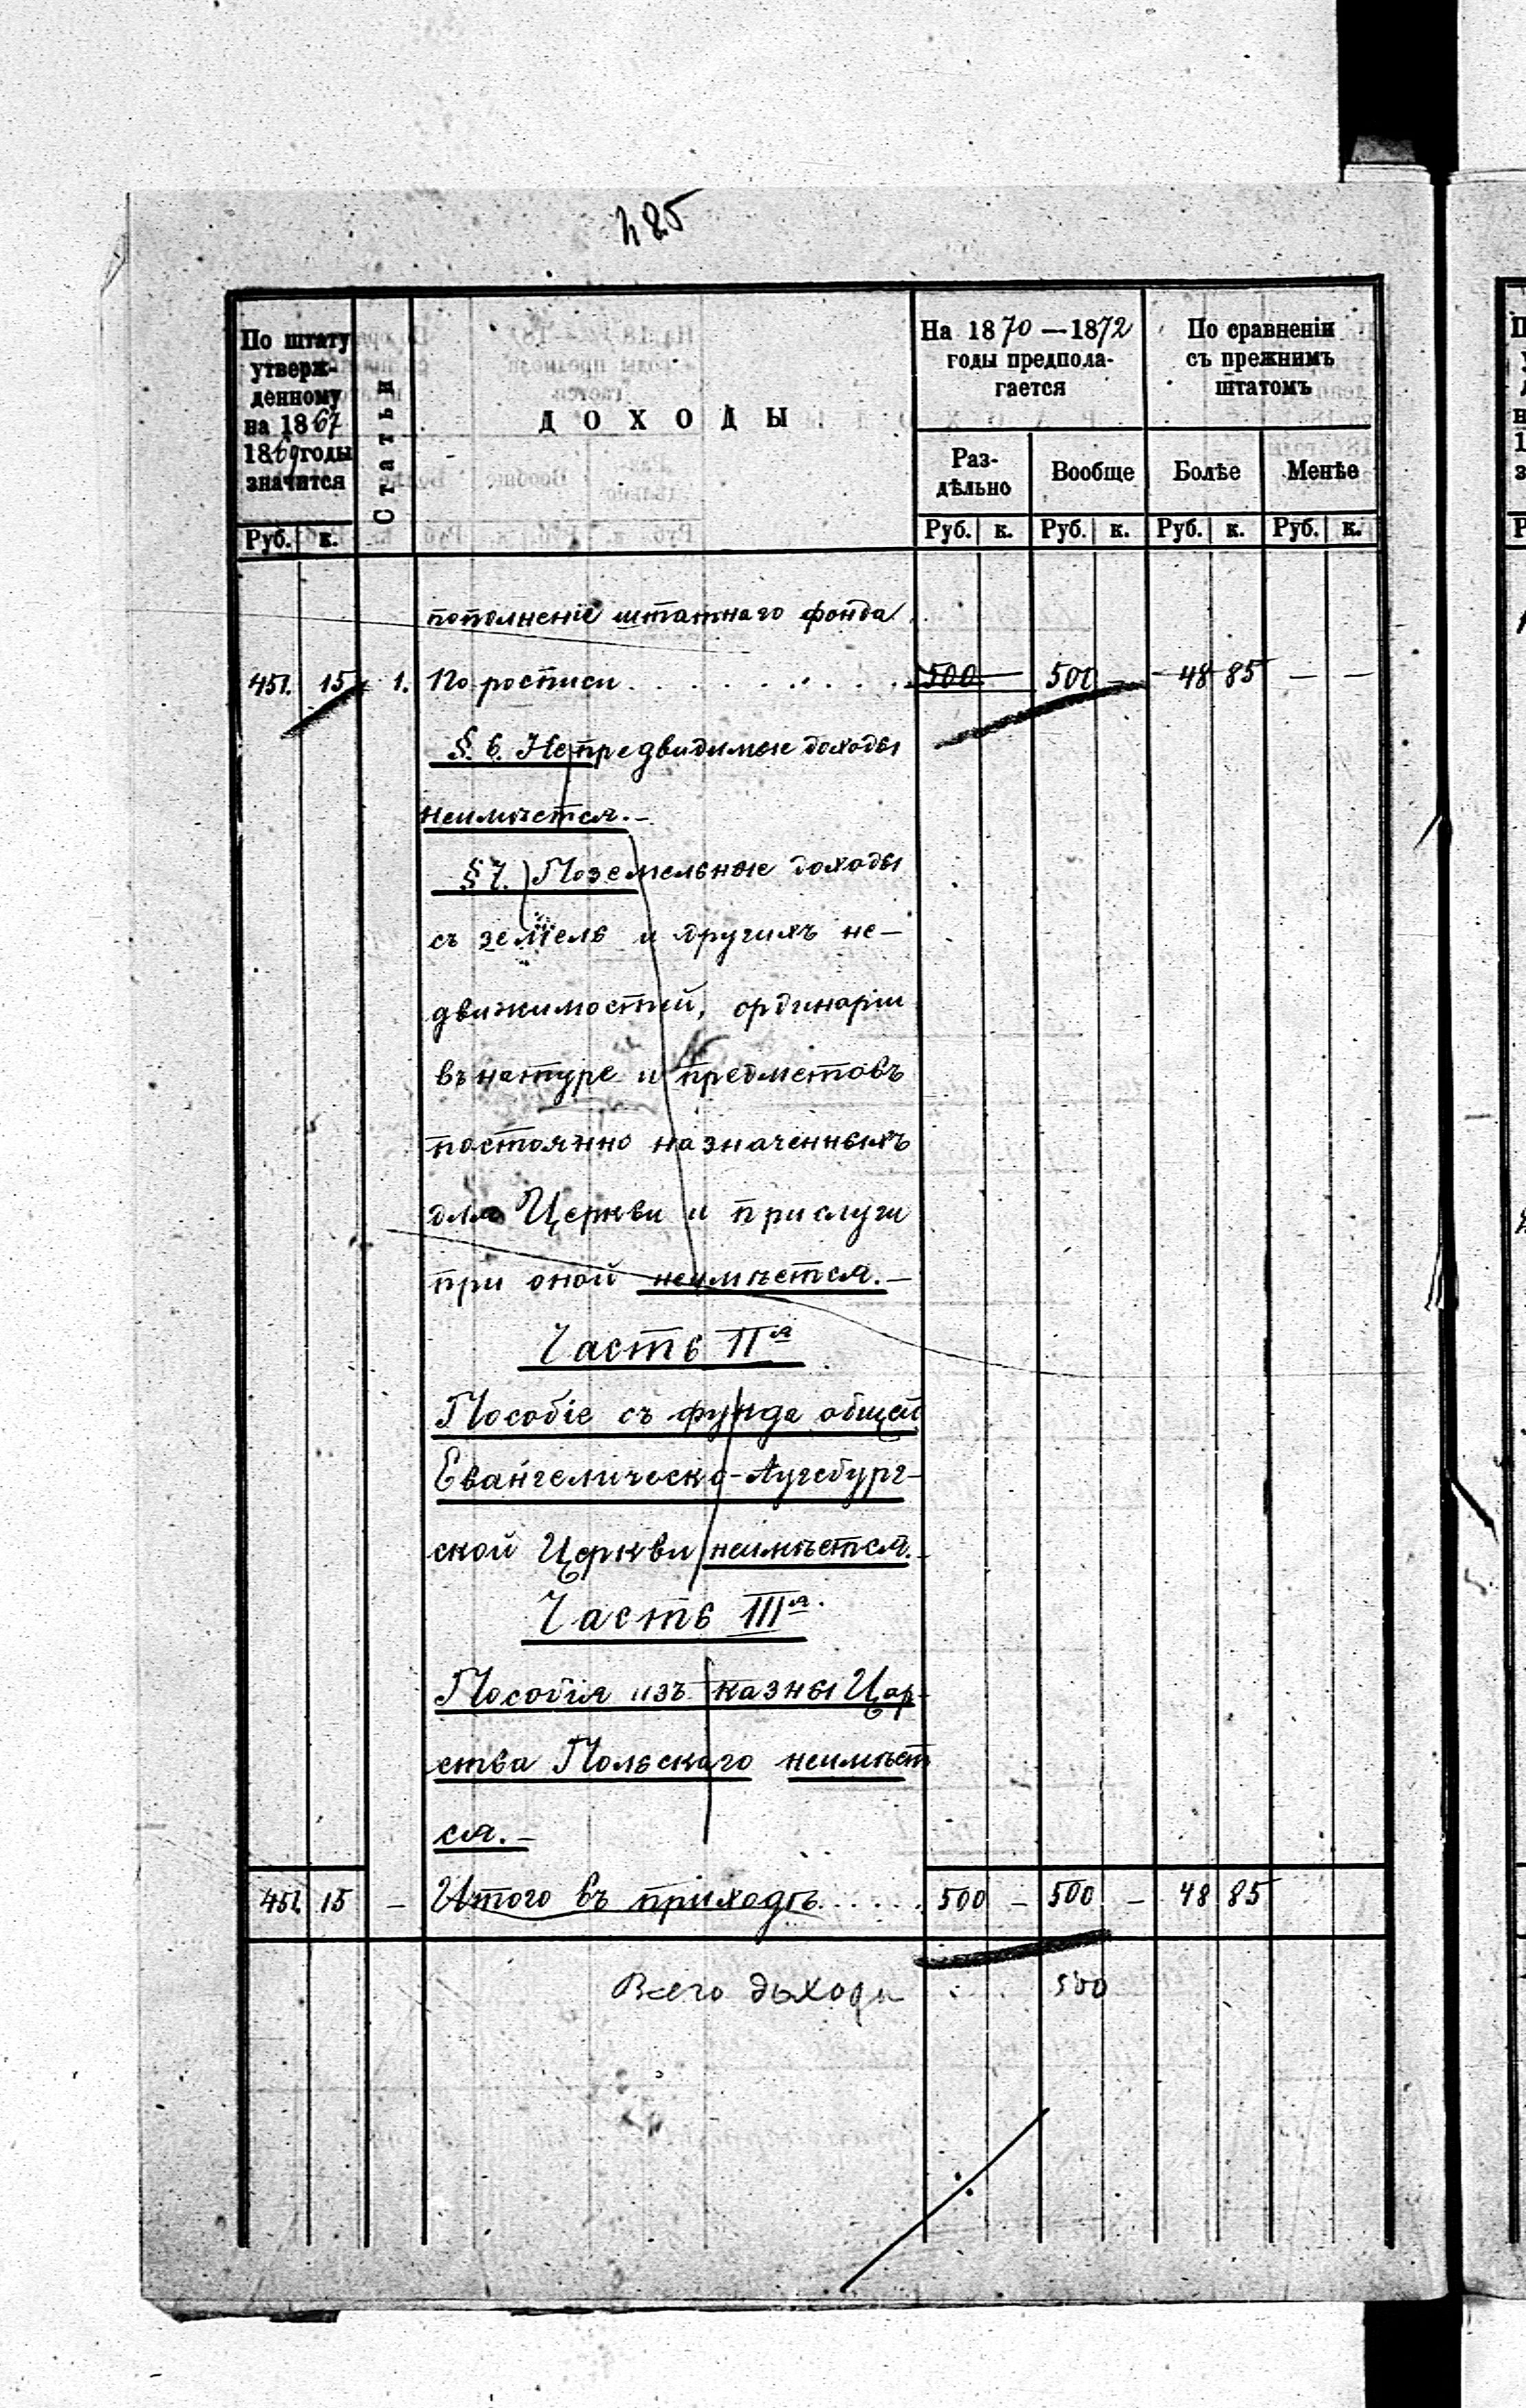 485
По штату
утверж-
денному
на 1867
1869 годы
значится
Руб. к.
Статьи
ДОХОДЫ
На 1870—1872
годы предпола-
гается
Раз-
дѣльно
Вообще
Руб. к. Руб. к.
По сравненіи
съ прежнимъ
штатомъ
Болѣе Менѣе
Руб. к. Руб. к.
пополненіе штатнаго фонда
451. 15 1. По росписи . . . . . . . . . 500 — 500 — 48 85 — —
§. 6. Непредвидимые доходы
неимѣется.—
§ 7. Поземельные доходы
съ земель и другихъ не—
движимостей, ординаріи
въ натуре и предметовъ
постоянно назначенныхъ
для Церкви и прислуги
при оной неимѣется.—
Часть IIя
Пособіе съ фунда общей
Евангелическо-Аугсбург-
ской Церкви неимѣется.—
Часть IIIя.
Пособія изъ казны Цар-
ства Польскаго неимѣет
ся.—
451. 15 — Итого въ приходѣ . . . . . 500 — 500 — 48 85
Всего дохода . . . 500